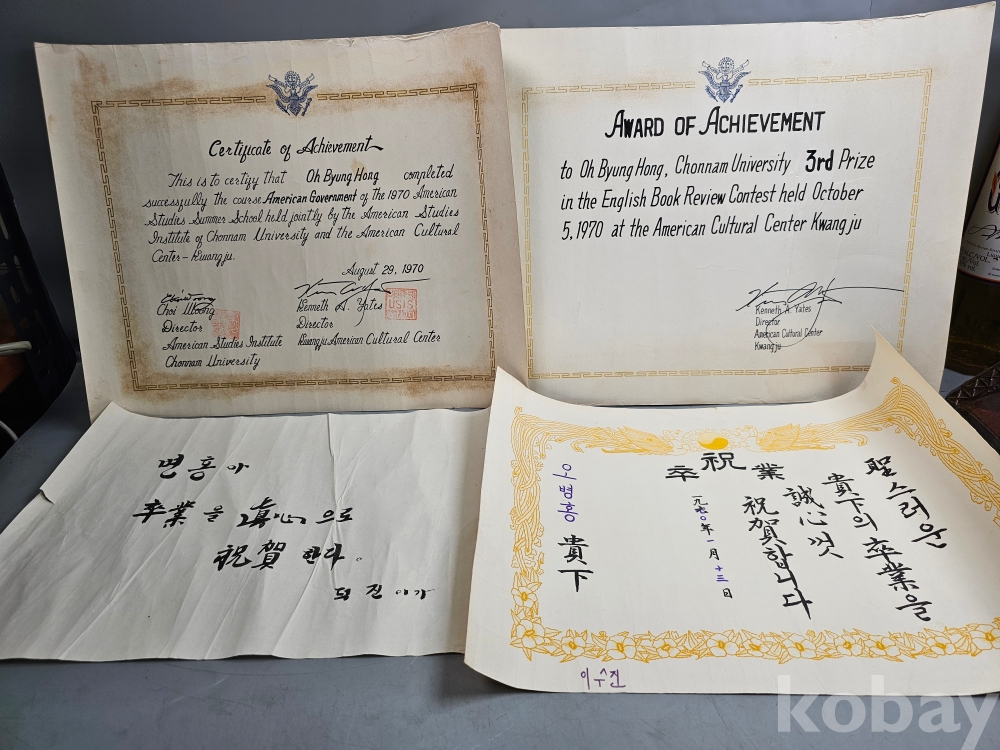 Certificate of Achievement
This is to certify that Oh Byung Hong completed
successfully the course American Government of the 1970 American
Studies Summer School held jointly by the American Studies
Institute of Chonnam University and the American Cultural
Center-Kwangju.
August 29, 1970
Choi Woong
Director
American Studies Institute
Chonnam University
Kenneth A. Yates
Director
Kwangju American Cultural Center
USIS
AWARD OF ACHIEVEMENT
to Oh Byung Hong, Chonnam University 3rd Prize
in the English Book Review Contest held October
5, 1970 at the American Cultural Center Kwangju
Kenneth A. Yates
Director
American Cultural Center
Kwangju
병홍아
卒業을 眞心으로
祝賀한다.
진이가
祝
卒業
聖스러운
貴下의 卒業을
誠心껏
祝賀합니다
一九七〇年 一月 十三日
오병홍 貴下
이수진
kobay